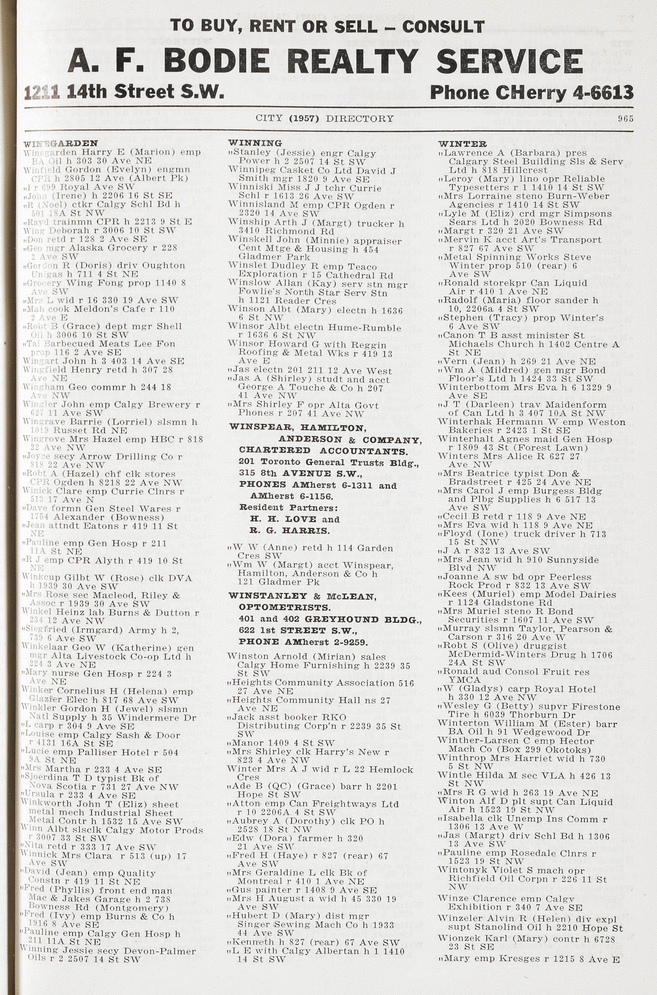 TO BUY, RENT OR SELL – CONSULT
A. F. BODIE REALTY SERVICE
1211 14th Street S.W. Phone CHerry 4-6613
CITY (1957) DIRECTORY 965
WINEGARDEN
Winegarden Harry E (Marion) emp
BA Oil h 303 30 Ave NE
Winfield Gordon (Evelyn) engmn
CPR h 2805 12 Ave (Albert Pk)
„I r 699 Royal Ave SW
„John (Irene) h 2206 16 St SE
„R (Noel) ctkr Calgy Schl Bd h
501 18A St NW
„Rayd trainmn CPR h 2213 9 St E
Wing Deborah r 3006 10 St SW
„Don retd r 128 2 Ave SE
„Geo mgr Alaska Grocery r 228
2 Ave SW
„Gordon R (Doris) driv Oughton
Unigas h 711 4 St NE
„Grocery Wing Fong prop 1140 8
Ave SW
„Mrs L wid r 16 330 19 Ave SW
„Mah cook Meldon's Cafe r 110
2 Ave E
„Robt B (Grace) dept mgr Shell
Oil h 3006 10 St SW
„Tai Barbecued Meats Lee Fon
prop 116 2 Ave SE
Wingart John h 3 403 14 Ave SE
Wingfield Henry retd h 307 28
Ave NE
Wingham Geo commr h 244 18
Ave NW
Wingler John emp Calgy Brewery r
627 11 Ave SW
Wingrave Barrie (Lorriel) slsmn h
1019 Russet Rd NE
Wingrove Mrs Hazel emp HBC r 818
22 Ave NW
„Joyce secy Arrow Drilling Co r
818 22 Ave NW
„Robt A (Hazel) chf clk stores
CPR Ogden h 8218 22 Ave NW
Winick Clare emp Currie Clnrs r
513 17 Ave N
„Dave formn Gen Steel Wares r
1764 Alexander (Bowness)
„Jean attndt Eatons r 419 11 St
NE
„Pauline emp Gen Hosp r 211
11A St NE
„R J emp CPR Alyth r 419 10 St
NE
Winkcup Gilbt W (Rose) clk DVA
h 1939 30 Ave SW
„Mrs Rose sec Macleod, Riley &
Assoc r 1939 30 Ave SW
Winkel Heinz lab Burns & Dutton r
234 12 Ave NW
„Siegfried (Irmgard) Army h 2,
739 6 Ave SW
Winkelaar Geo W (Katherine) gen
mgr Alta Livestock Co-op Ltd h
224 3 Ave NE
„Mary nurse Gen Hosp r 224 3
Ave NE
Winker Cornelius H (Helena) emp
Glazfer Elec h 817 68 Ave SW
Winkler Gordon H (Jewel) slsmn
Natl Supply h 35 Windermere Dr
„L carp r 304 9 Ave SE
„Louise emp Calgy Sash & Door
r 4131 16A St SE
„Lucie emp Palliser Hotel r 504
9A St NE
„Mrs Martha r 233 4 Ave SE
„Sjoerdina T D typist Bk of
Nova Scotia r 731 27 Ave NW
„Ursula r 233 4 Ave SE
Winkworth John T (Eliz) sheet
metal mech Industrial Sheet
Metal Contr h 1532 15 Ave SW
Winn Albt slsclk Calgy Motor Prods
r 3007 33 St SW
„Nita retd r 333 17 Ave SW
Winnick Mrs Clara r 513 (up) 17
Ave SW
„David (Jean) emp Quality
Constn r 419 11 St NE
„Fred (Phyllis) front end man
Mac & Jakes Garage h 2 738
Bowness Rd (Montgomery)
„Fred (Ivy) emp Burns & Co h
1916 8 Ave SE
„Pauline emp Calgy Gen Hosp h
211 11A St NE
Winning Jessie secy Devon-Palmer
Oils r 2 2507 14 St SW
WINNING
„Stanley (Jessie) engr Calgy
Power h 2 2507 14 St SW
Winnipeg Casket Co Ltd David J
Smith mgr 1820 9 Ave SE
Winniski Miss J J tchr Currie
Schl r 1613 26 Ave SW
Winnisland M emp CPR Ogden r
2320 14 Ave SW
Winship Arth J (Margt) trucker h
3410 Richmond Rd
Winskell John (Minnie) appraiser
Cent Mtge & Housing h 454
Gladmer Park
Winslet Dudley R emp Teaco
Exploration r 15 Cathedral Rd
Winslow Allan (Kay) serv stn mgr
Fowlie's North Star Serv Stn
h 1121 Reader Cres
Winson Albt (Mary) electn h 1636
6 St NW
Winsor Albt electn Hume-Rumble
r 1636 6 St NW
Winsor Howard G with Reggin
Roofing & Metal Wks r 419 13
Ave E
„Jas electn 201 211 12 Ave West
„Jas A (Shirley) studt and acct
George A Touche & Co h 207
41 Ave NW
„Mrs Shirley F opr Alta Govt
Phones r 207 41 Ave NW
WINSPEAR, HAMILTON,
ANDERSON & COMPANY,
CHARTERED ACCOUNTANTS.
201 Toronto General Trusts Bldg.,
315 8th AVENUE S.W.,
PHONES AMherst 6-1311 and
AMherst 6-1156.
Resident Partners:
H. H. LOVE and
R. G. HARRIS.
„W W (Anne) retd h 114 Garden
Cres SW
„Wm W (Margt) acct Winspear,
Hamilton, Anderson & Co h
121 Gladmer Pk
WINSTANLEY & McLEAN,
OPTOMETRISTS.
401 and 402 GREYHOUND BLDG.,
622 1st STREET S.W.,
PHONE AMherst 2-9259.
Winston Arnold (Mirian) sales
Calgy Home Furnishing h 2239 35
St SW
„Heights Community Association 516
27 Ave NE
„Heights Community Hall ns 27
Ave NE
„Jack asst booker RKO
Distributing Corp'n r 2239 35 St
SW
„Manor 1409 4 St SW
„Mrs Shirley clk Harry's New r
823 4 Ave NW
Winter Mrs A J wid r L 22 Hemlock
Cres
„Ade B (QC) (Grace) barr h 2201
Hope St SW
„Atton emp Can Freightways Ltd
r 10 2206A 4 St SW
„Aubrey A (Dorothy) clk PO h
2528 18 St NW
„Edw (Dora) farmer h 320
21 Ave SW
„Fred H (Haye) r 827 (rear) 67
Ave SW
„Mrs Geraldine L clk Bk of
Montreal r 410 1 Ave NE
„Gus painter r 1408 9 Ave SE
„Mrs H August a wid h 45 330 19
Ave SW
„Hubert D (Mary) dist mgr
Singer Sewing Mach Co h 1933
44 Ave SW
„Kenneth h 827 (rear) 67 Ave SW
„L E with Calgy Albertan h 1 1410
14 St SW
WINTER
„Lawrence A (Barbara) pres
Calgary Steel Building Sls & Serv
Ltd h 818 Hillcrest
„Leroy (Mary) lino opr Reliable
Typesetters r 1 1410 14 St SW
„Mrs Lorraine steno Burn-Weber
Agencies r 1410 14 St SW
„Lyle M (Eliz) crd mgr Simpsons
Sears Ltd h 2020 Bowness Rd
„Margt r 320 21 Ave SW
„Mervin K acct Art's Transport
r 827 67 Ave SW
„Metal Spinning Works Steve
Winter prop 510 (rear) 6
Ave SW
„Ronald storekpr Can Liquid
Air r 410 1 Ave NE
„Radolf (Maria) floor sander h
10, 2206a 4 St SW
„Stephen (Tracy) prop Winter's
6 Ave SW
„Canon T B asst minister St
Michaels Church h 1402 Centre A
St NE
„Vern (Jean) h 269 21 Ave NE
„Wm A (Mildred) gen mgr Bond
Floor's Ltd h 1424 33 St SW
Winterbottom Mrs Eva h 6 1329 9
Ave SE
„J T (Darleen) trav Maidenform
of Can Ltd h 3 407 10A St NW
Winterhak Hermann W emp Weston
Bakeries r 2423 1 St SE
Winterhalt Agnes maid Gen Hosp
r 1809 43 St (Forest Lawn)
Winters Mrs Alice R 627 27
Ave NW
„Mrs Beatrice typist Don &
Bradstreet r 425 24 Ave NW
„Mrs Carol J emp Burgess Bldg
and Plbg Supplies h 6 517 13
Ave SW
„Cecil B retd r 118 9 Ave NE
„Mrs Eva wid h 118 9 Ave NE
„Floyd (Ione) truck driver h 713
15 St NW
„J A r 832 13 Ave SW
„Mrs Jean wid h 910 Sunnyside
Blvd NW
„Joanne A sw bd opr Peerless
Rock Prod r 832 13 Ave SW
„Kees (Muriel) emp Model Dairies
r 1124 Gladstone Rd
„Mrs Muriel steno R Bond
Securities r 1607 11 Ave SW
„Murray slsmn Taylor, Pearson &
Carson r 316 20 Ave W
„Robt S (Olive) druggist
McDermid-Winters Drug h 1706
24A St SW
„Ronald aud Consol Fruit res
YMCA
„W (Gladys) carp Royal Hotel
h 330 12 Ave NW
„Wesley G (Betty) supvr Firestone
Tire h 6039 Thorburn Dr
Winterton William M (Ester) barr
BA Oil h 91 Wedgewood Dr
Winther-Larsen C emp Hector
Mach Co (Box 299 Okotoks)
Winthrop Mrs Harriet wid h 730
5 St NW
Wintle Hilda M sec VLA h 426 13
St NW
„Mrs R G wid h 263 19 Ave NE
Winton Alf D plt supt Can Liquid
Air h 1523 19 St NW
„Isabella clk Unemp Ins Comm r
1306 13 Ave W
„Jas (Margt) driv Schl Bd h 1306
13 Ave SW
„Pauline emp Rosedale Clnrs r
1523 19 St NW
Wintonyk Violet S mach opr
Richfield Oil Corpn r 226 11 St
NW
Winze Clarence emp Calgy
Exhibition r 340 7 Ave SE
Winzeler Alvin R (Helen) div expl
supt Stanolind Oil h 2210 Hope St
Wionzek Karl (Mary) contr h 6728
23 St SE
„Mary emp Kresges r 1215 8 Ave E